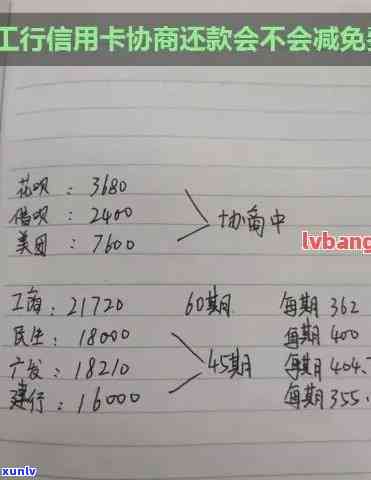 工行信用卡协商还款会不会减免
花呗：3680
借呗：2400
美团：7600
协商中
lvbang
工商：21720 60期 每期362
民生：18000 每期400
广发：18210 45期 每期404.
建行：16000 每期355.
xunlv